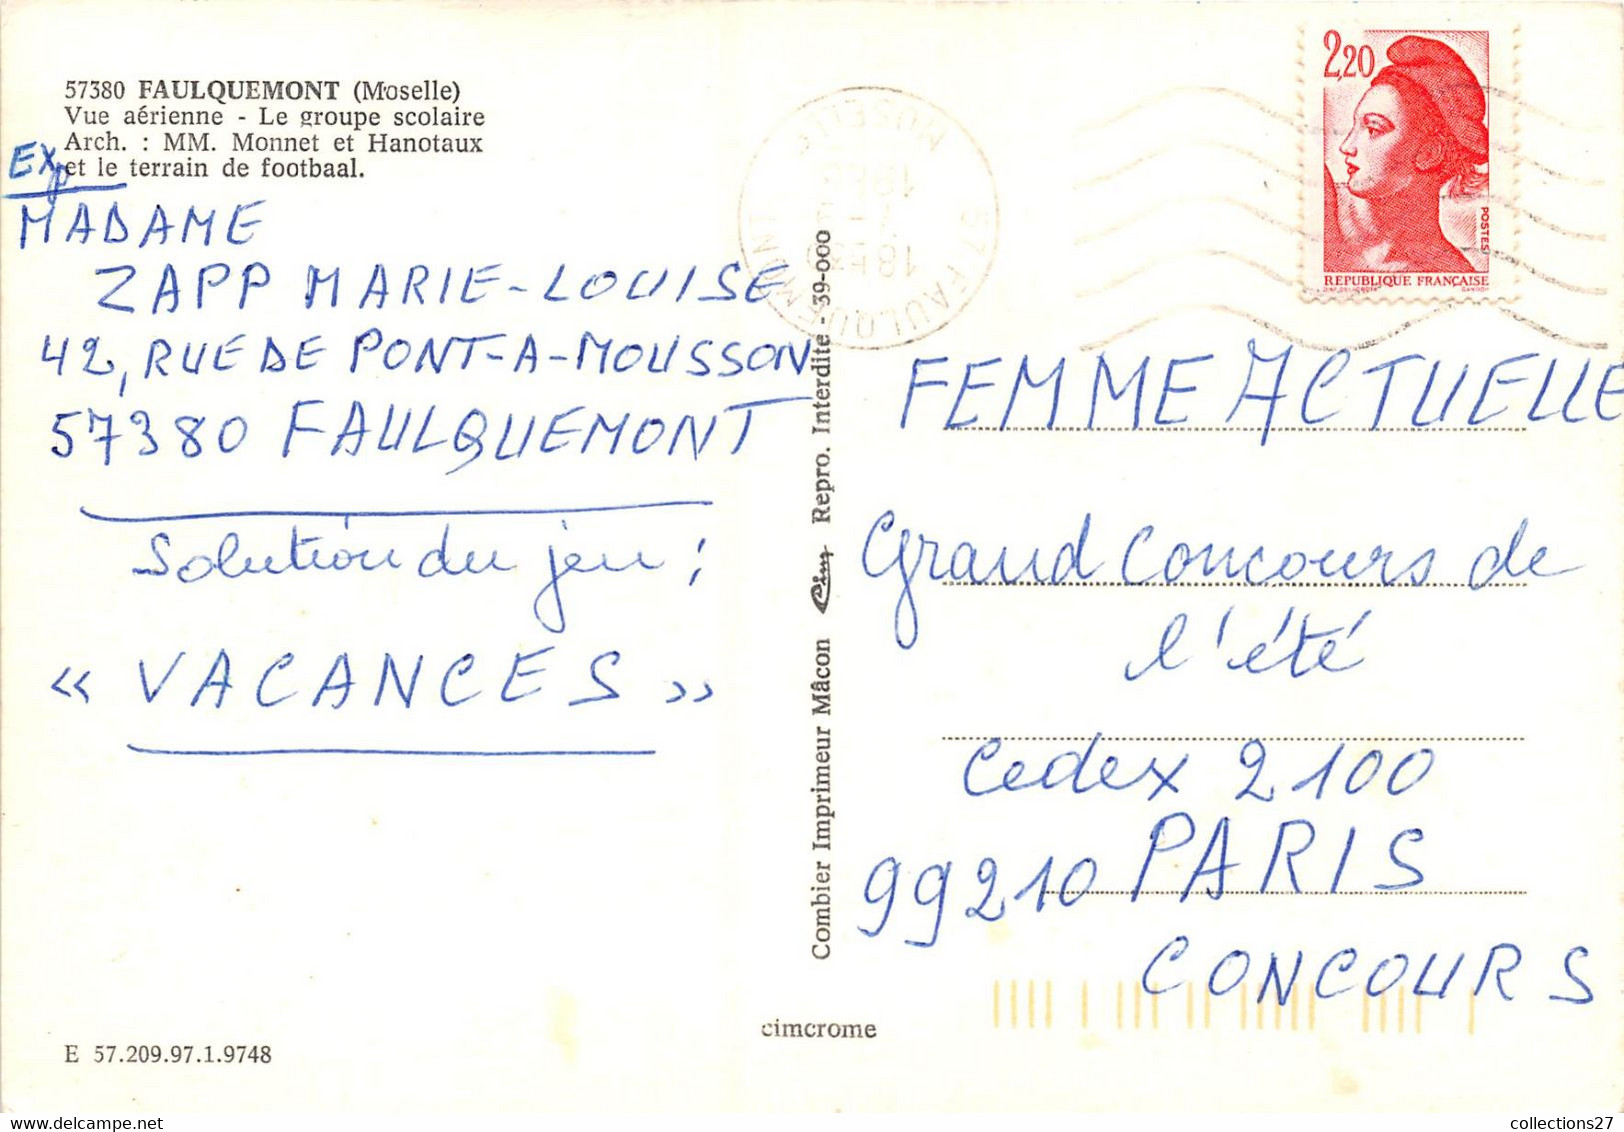 57380 FAULQUEMONT (Moselle)
Vue aérienne - Le groupe scolaire
Arch. : MM. Monnet et Hanotaux
et le terrain de footbaal.
Exp
MADAME
ZAPP MARIE-LOUISE
42, RUE DE PONT-A-MOUSSON
57380 FAULQUEMONT
Solution du jeu :
« VACANCES »
E 57.209.97.1.9748
Combier Imprimeur Mâcon Cim Repro. Interdite - 39-000
cimcrome
57 FAULQUEMONT
MOSELLE
18H30
2,20
POSTES
REPUBLIQUE FRANÇAISE
FEMME ACTUELLE
Grand Concours de
l'été
Cedex 2100
99210 PARIS
CONCOURS
collections27